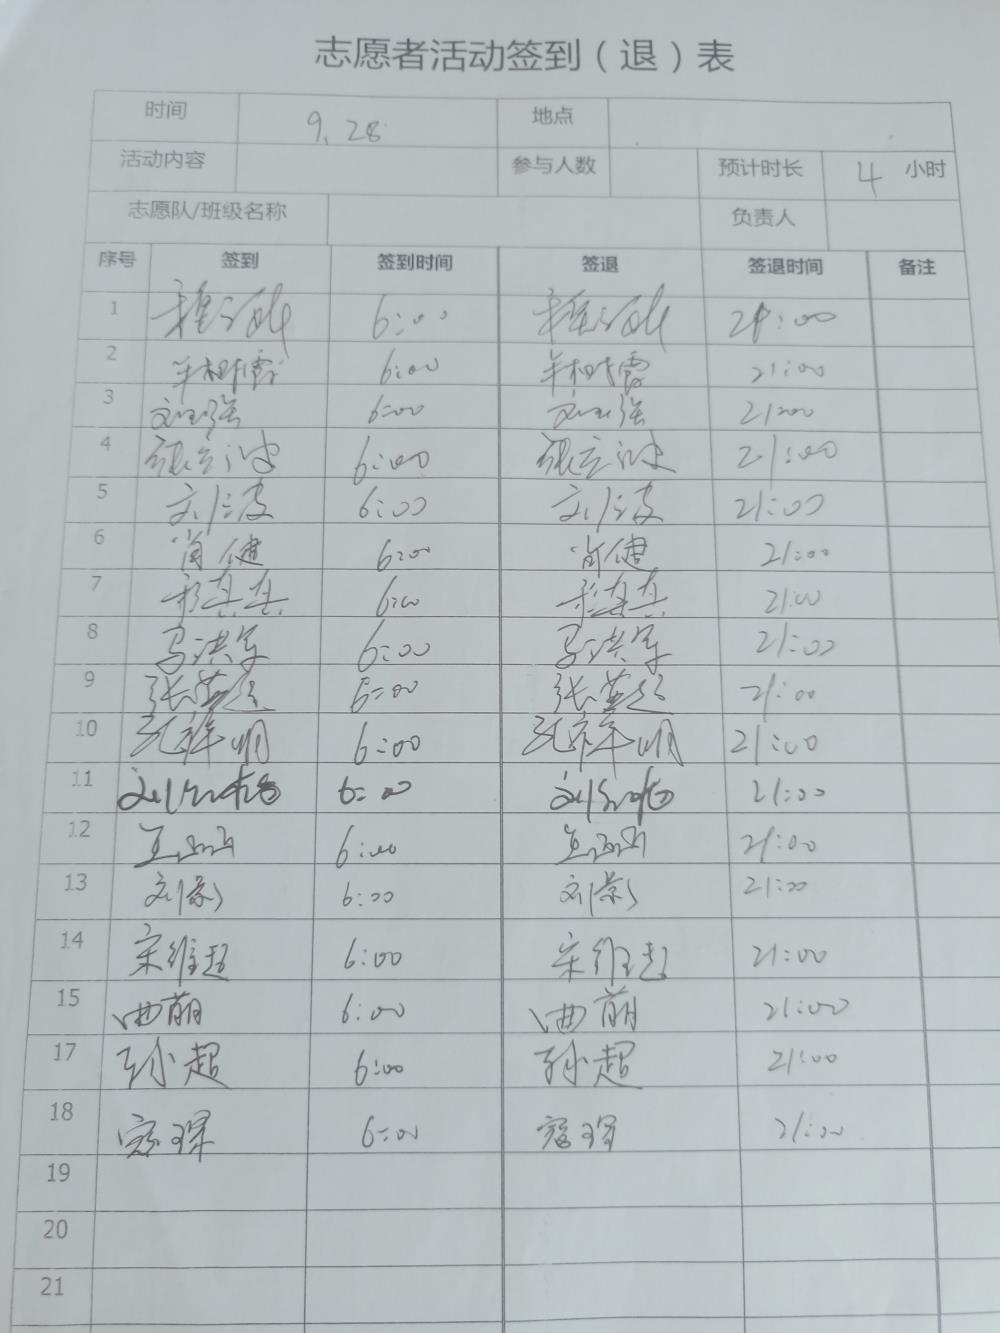 志愿者活动签到（退）表
时间 9.28 地点
活动内容 参与人数 预计时长 4 小时
志愿队/班级名称 负责人
序号 签到 签到时间 签退 签退时间 备注
1 6:00 21:00
2 6:00 21:00
3 6:00 21:00
4 6:00 21:00
5 6:00 21:00
6 肖健 6:00 肖健 21:00
7 6:00 21:00
8 马洪军 6:00 马洪军 21:00
9 张英超 6:00 张英超 21:00
10 孔祥明 6:00 孔祥明 21:00
11 6:00 21:00
12 6:00 21:00
13 刘影 6:00 刘影 21:00
14 宋维超 6:00 宋维超 21:00
15 曲萌 6:00 曲萌 21:00
17 孙超 6:00 孙超 21:00
18 寇琛 6:00 寇琛 21:00
19
20
21